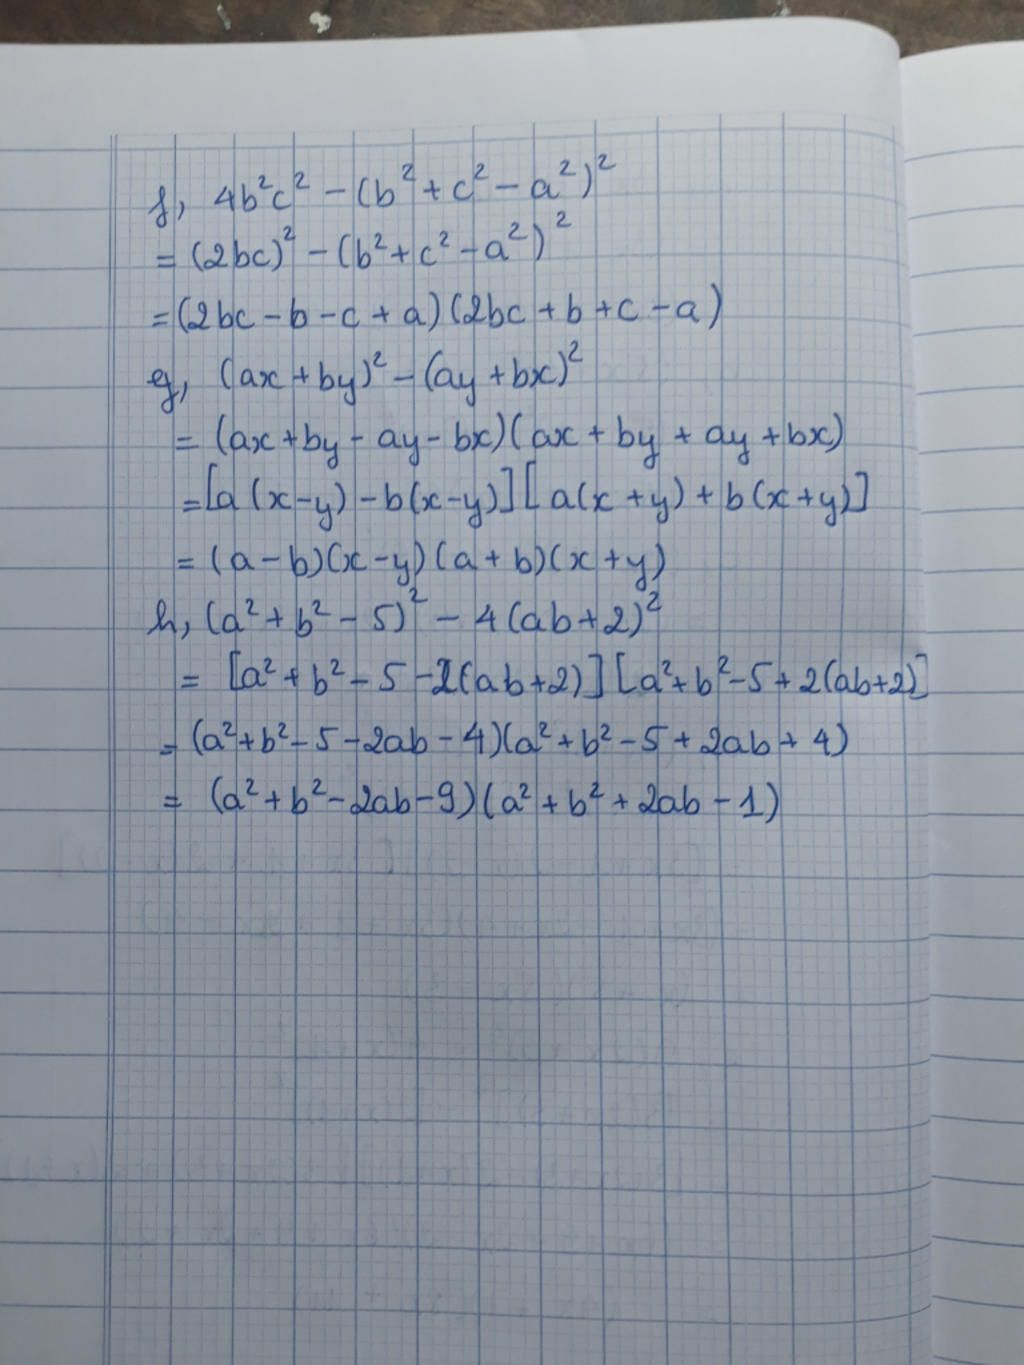 f, 4b²c² - (b² + c² - a²)²
= (2bc)² - (b² + c² - a²)²
= (2bc - b - c + a)(2bc + b + c - a)
g, (ax + by)² - (ay + bx)²
= (ax + by - ay - bx)(ax + by + ay + bx)
= [a(x - y) - b(x - y)][a(x + y) + b(x + y)]
= (a - b)(x - y)(a + b)(x + y)
h, (a² + b² - 5)² - 4(ab + 2)²
= [a² + b² - 5 - 2(ab + 2)][a² + b² - 5 + 2(ab + 2)]
= (a² + b² - 5 - 2ab - 4)(a² + b² - 5 + 2ab + 4)
= (a² + b² - 2ab - 9)(a² + b² + 2ab - 1)